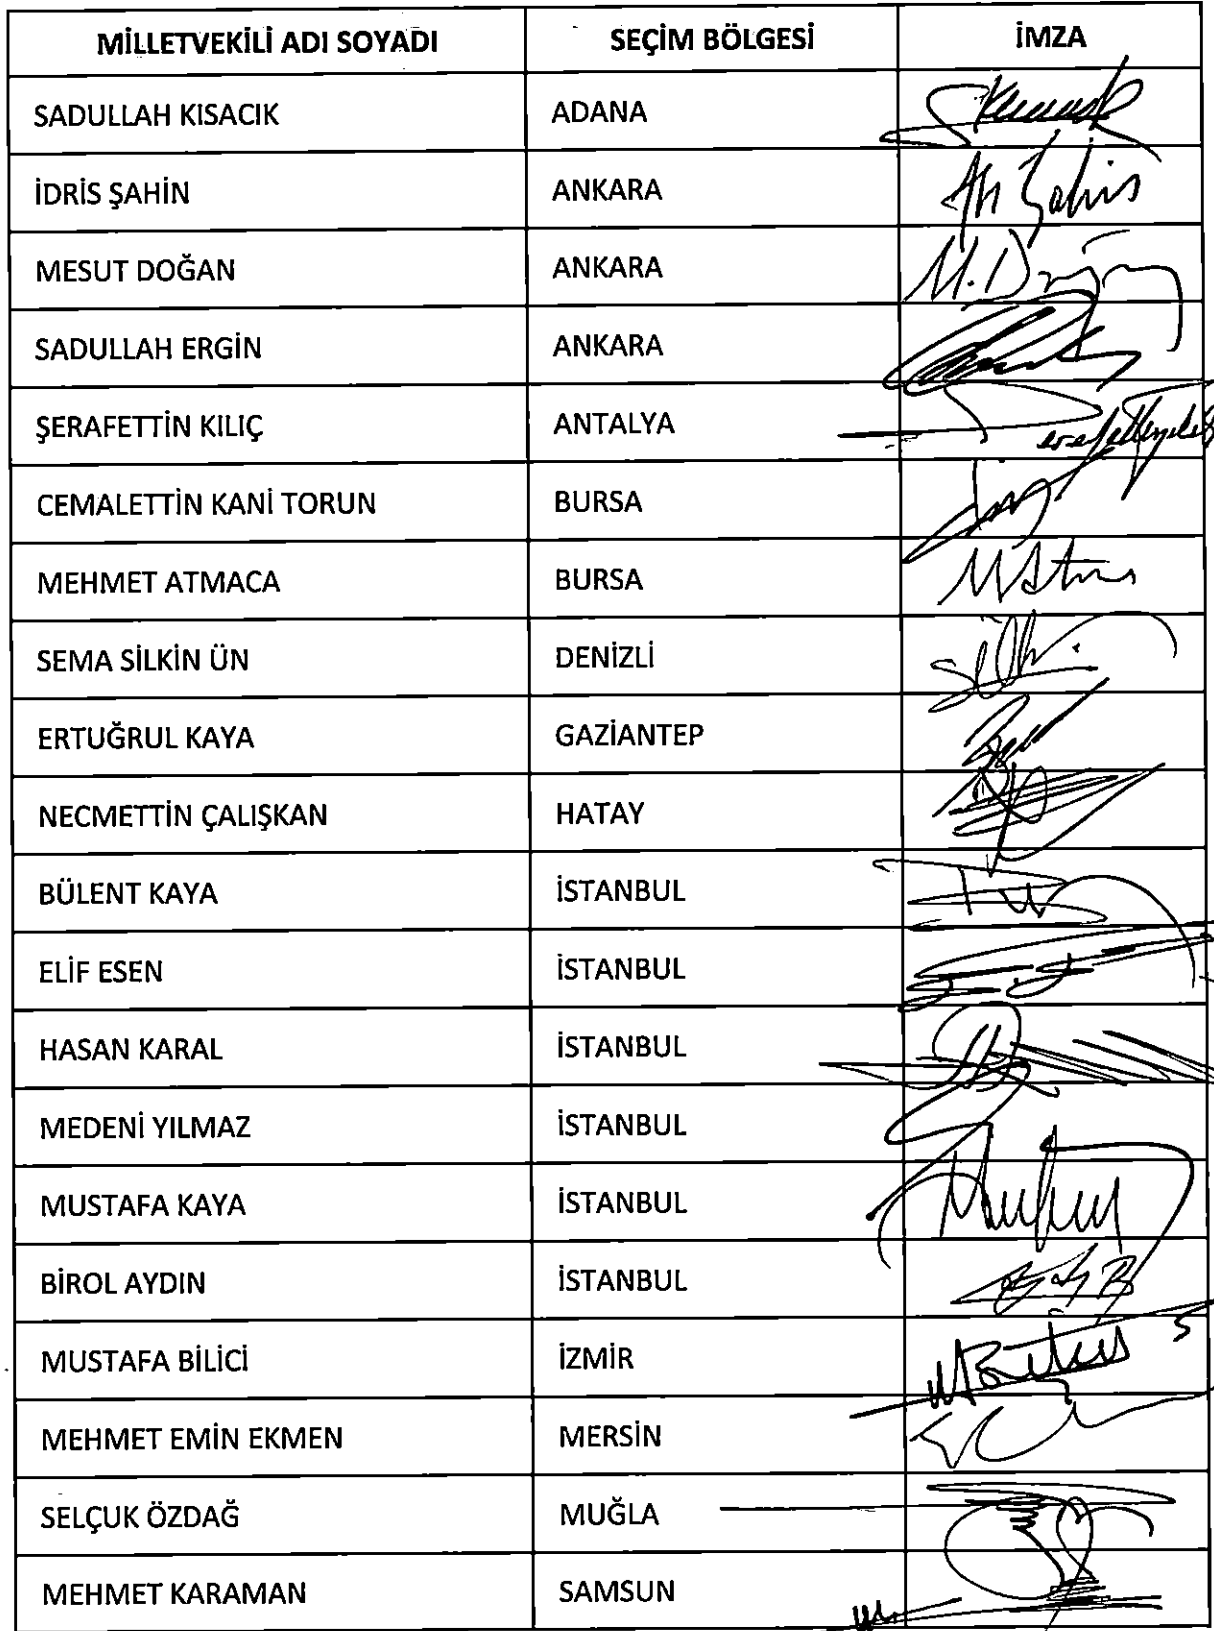 MİLLETVEKİLİ ADI SOYADI SEÇİM BÖLGESİ İMZA
SADULLAH KISACIK ADANA
İDRİS ŞAHİN ANKARA
MESUT DOĞAN ANKARA M. Doğan
SADULLAH ERGİN ANKARA
ŞERAFETTİN KILIÇ ANTALYA
CEMALETTİN KANİ TORUN BURSA
MEHMET ATMACA BURSA
SEMA SİLKİN ÜN DENİZLİ
ERTUĞRUL KAYA GAZİANTEP
NECMETTİN ÇALIŞKAN HATAY
BÜLENT KAYA İSTANBUL
ELİF ESEN İSTANBUL
HASAN KARAL İSTANBUL
MEDENİ YILMAZ İSTANBUL
MUSTAFA KAYA İSTANBUL
BİROL AYDIN İSTANBUL
MUSTAFA BİLİCİ İZMİR
MEHMET EMİN EKMEN MERSİN
SELÇUK ÖZDAĞ MUĞLA
MEHMET KARAMAN SAMSUN